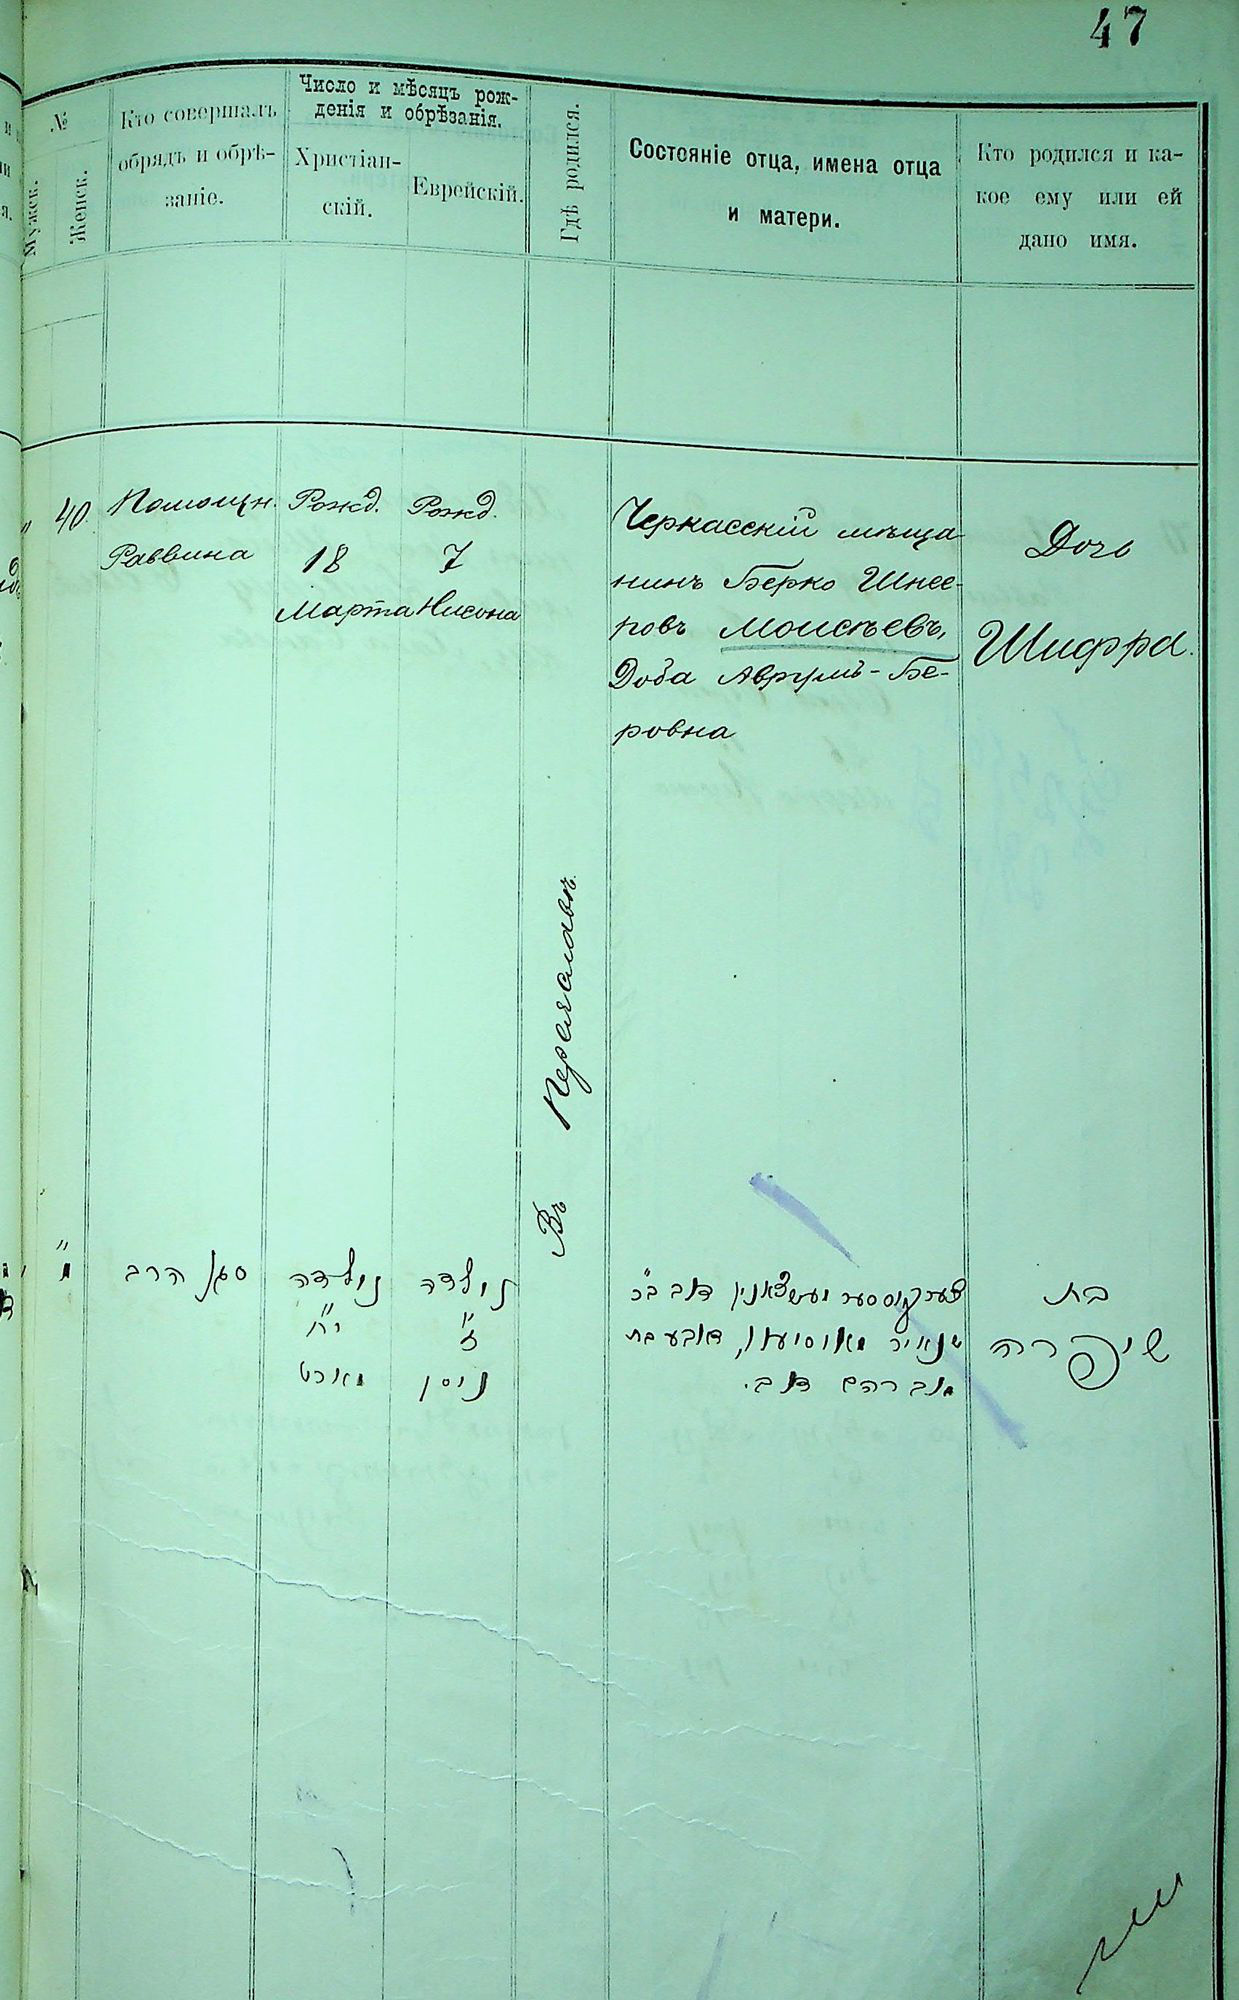 47
№
Мужск.
Женск.
Кто совершалъ
обрядъ и обрѣ-
заніе.
Число и мѣсяцъ рож-
денія и обрѣзанія.
Христіан-
скій.
Еврейскій.
Гдѣ родился.
Состояніе отца, имена отца
и матери.
Кто родился и ка-
кое ему или ей
дано имя.
40.
Помощн.
Раввина
Рожд.
18
Марта
Рожд.
7
Нисона
Въ Переяславѣ
Черкасскій мѣща-
нинъ Берко Шнее-
ровъ Моисѣевъ,
Доба Аврумъ-Бе-
ровна
Дочь
Шифра.
סגן הרב
נולדה
י"ח
מארט
נולדה
ז'
ניסן
דוב ב"ר
שנאיר מאוסיעוו, דאבע בת
אברהם דוב.
בת
שיפרה